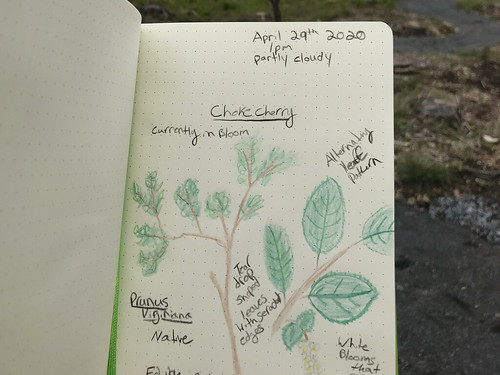 April 29th 2020
1pm
partly cloudy
Choke Cherry
currently in Bloom
Alternating
leaf
Pattern
Tear
drop
shaped
leaves
with serrated
edges
Prunus
Virginiana
Native
White
Blooms
that